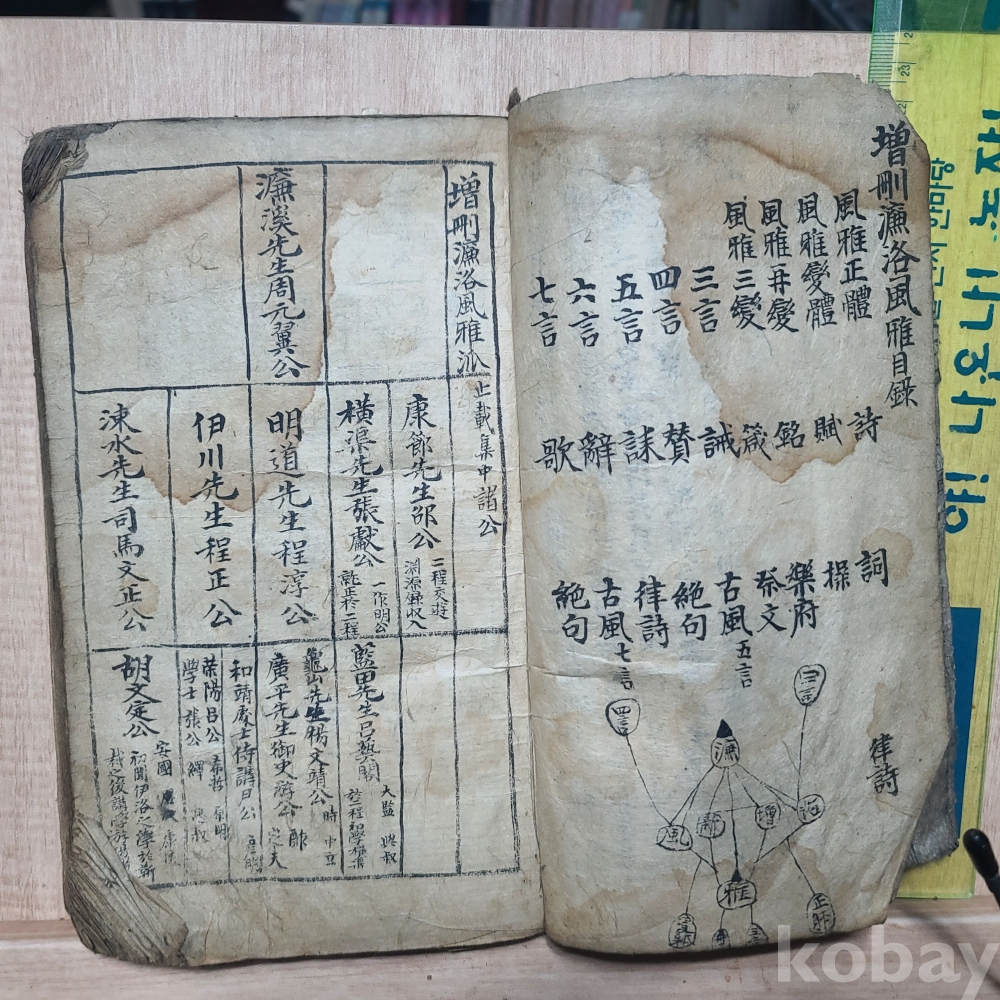 增刪濂洛風雅目錄
風雅正體
風雅變體
風雅再變
風雅三變
三言
四言
五言
六言
七言
詩
賦
銘
箴
誡
贊
誄
辭
歌
詞
操
樂府
祭文
古風 五言
絕句
律詩
古風 七言
絕句
律詩
四言
濂
風
雅
增刪濂洛風雅派
濂溪先生周元翼公
止載集中諸公
康節先生邵公 二程交遊 淵源錄收入
橫渠先生張獻公 一作明公
明道先生程淳公
伊川先生程正公
涑水先生司馬文正公
藍田先生呂 大 與叔
龜山先生楊文靖公 時 中立
廣平先生御史游公
和靖處士侍講
榮陽呂公 希哲 原明
學士張公 繹 思叔
胡文定公 安國 康侯
初聞伊洛之學於
kobay